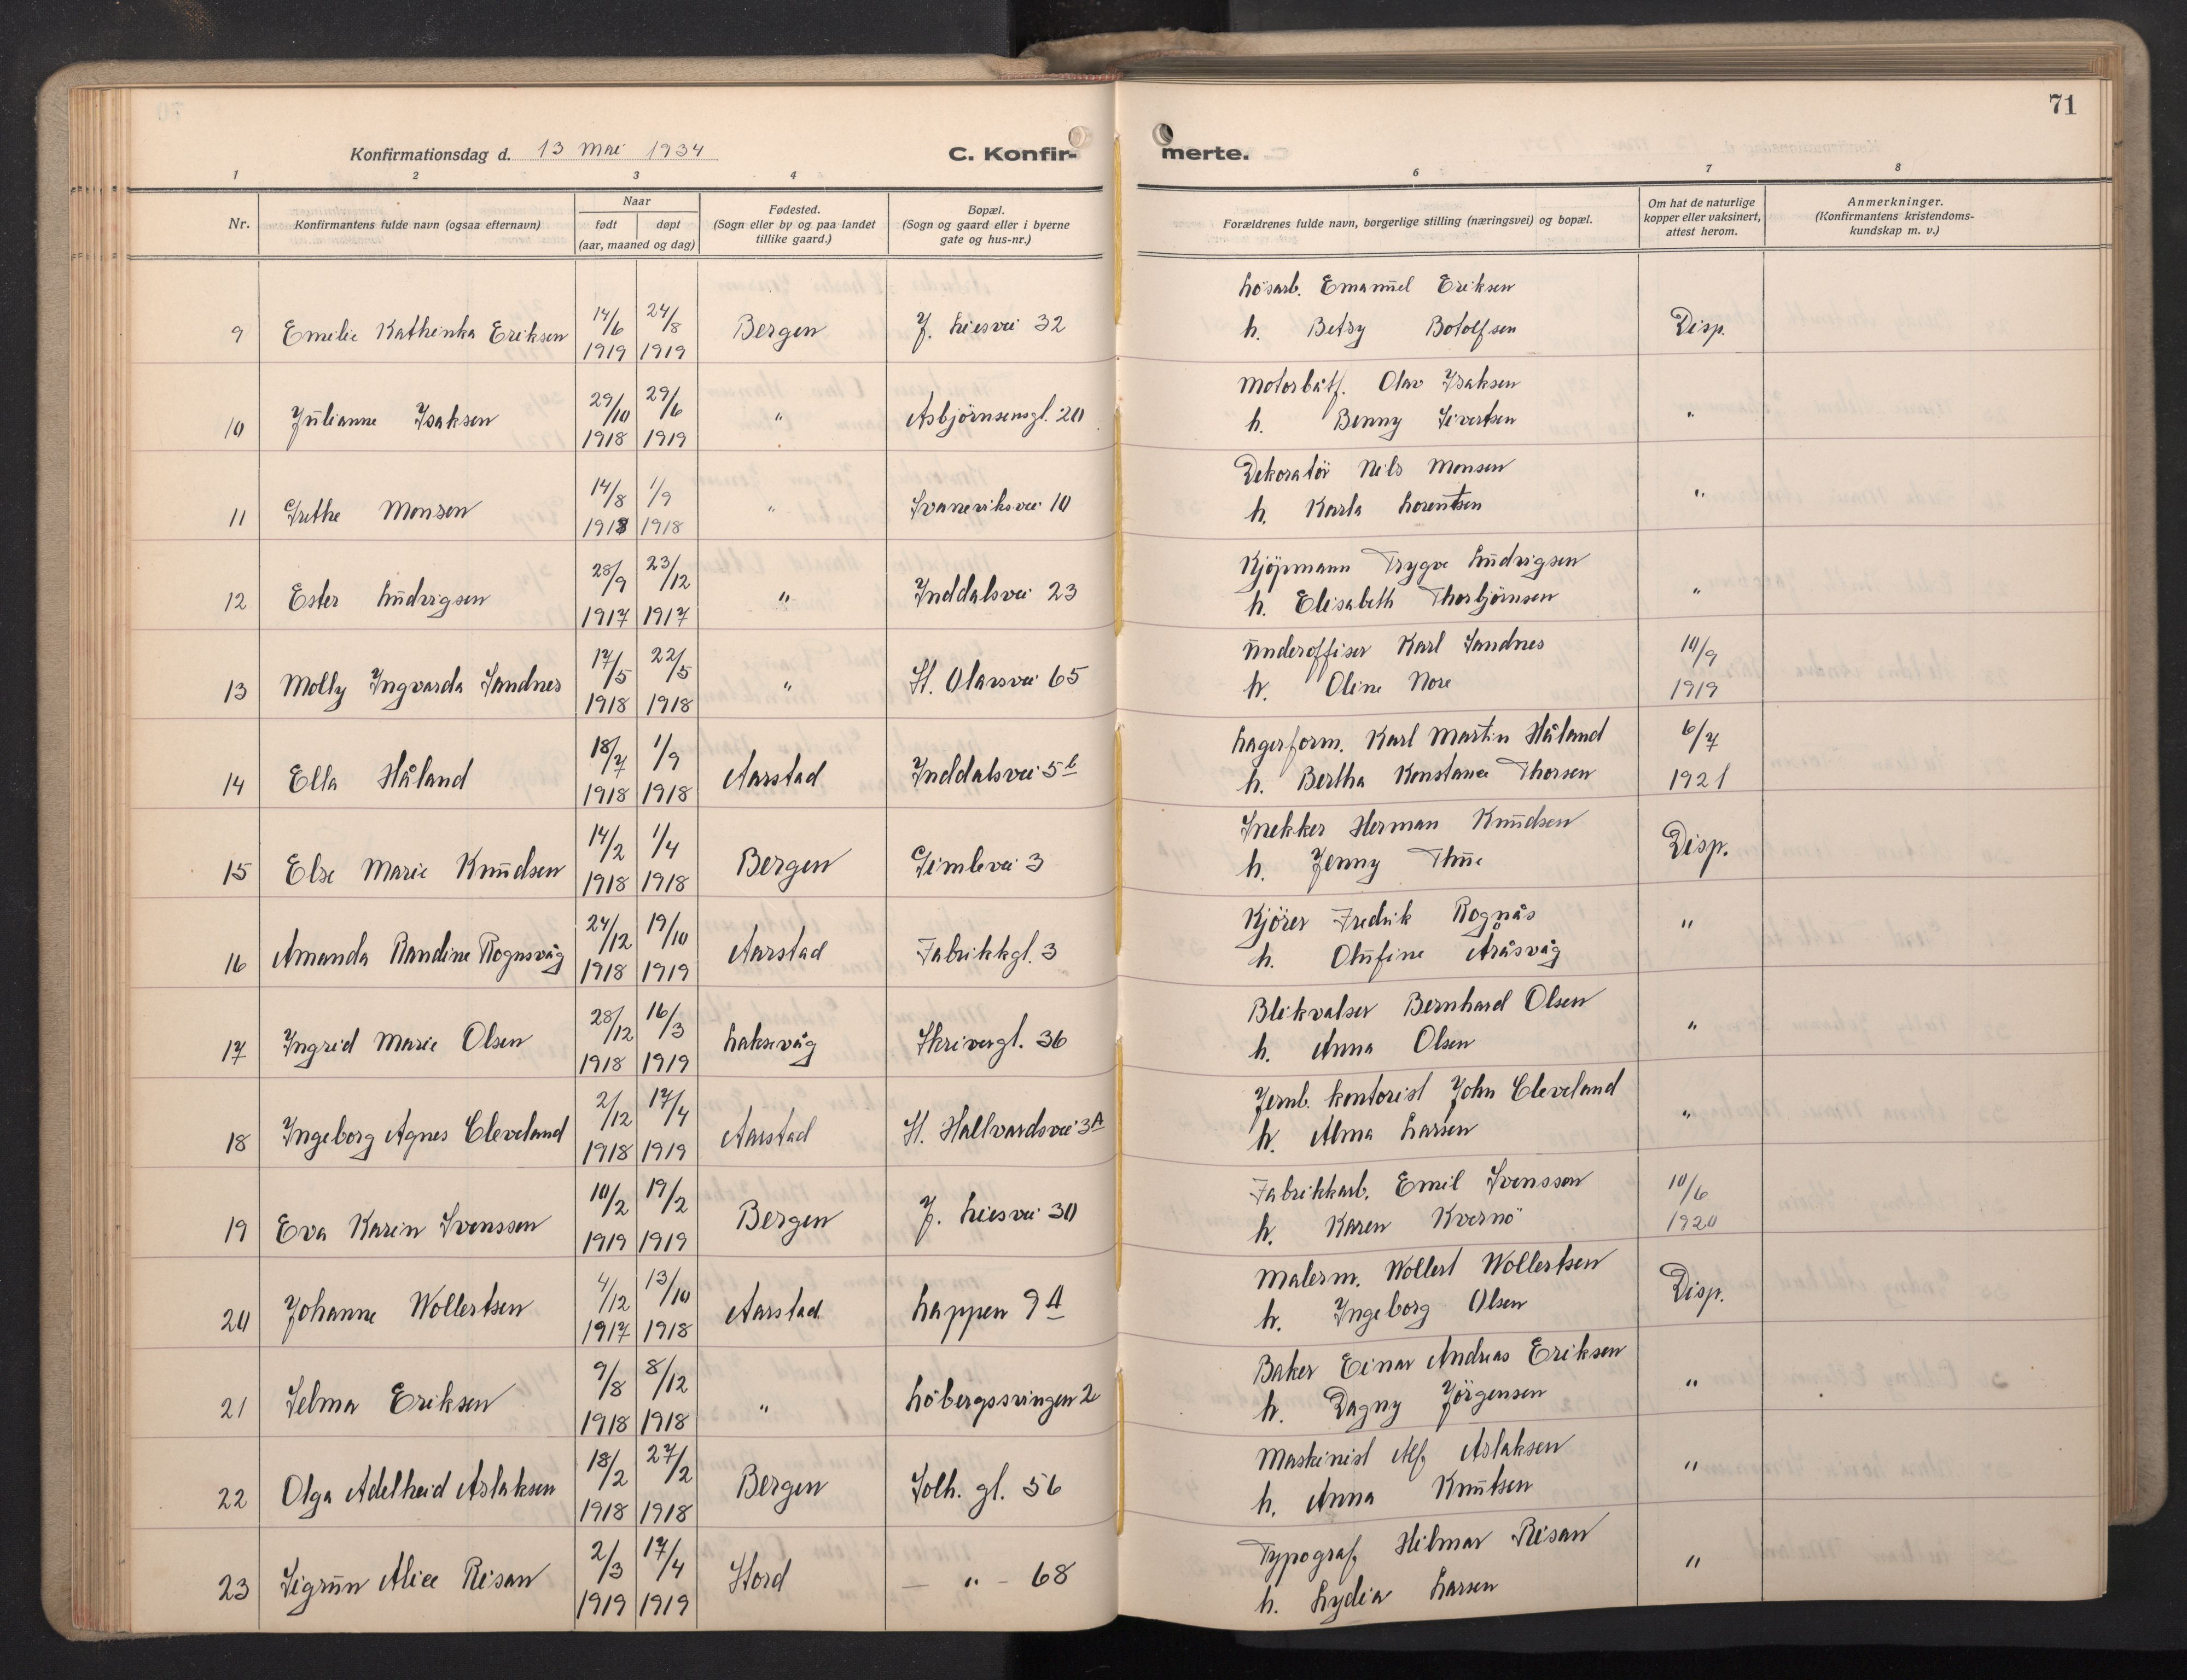 71
Konfirmationsdag d. 13 mai 1934
C. Konfirmerte.
1 2 3 4 6 7 8
Nr.
Konfirmantens fulde navn (ogsaa efternavn)
Naar
født døpt
(aar, maaned og dag)
Fødested.
(Sogn eller by og paa landet
tillike gaard.)
Bopæl.
(Sogn og gaard eller i byerne
gate og hus-nr.)
Forældrenes fulde navn, borgerlige stilling (næringsvei) og bopæl.
Om hat de naturlige
kopper eller vaksinert,
attest herom.
Anmerkninger.
(Konfirmantens kristendoms-
kundskap m. v.)
Løsarb. Emanuel Eriksen
9 Emilie Kathinka Eriksen 14/6 1919 24/8 1919 Bergen J. Liesvei 32 h. Betzy Botolfsen Disp.
Motorbåtf. Olav Isaksen
10 Julianne Isaksen 29/10 1918 29/6 1919 " Asbjörnsensgt. 20 h. Benny Sivertsen "
Dekoratör Nils Monsen
11 Grethe Monsen 14/8 1918 1/9 1918 " Svaneviksvei 10 h. Karla Lorentsen "
Kjöpmann Trygve Ludvigsen
12 Ester Ludvigsen 28/9 1917 23/12 1917 " Inddalsvei 23 h. Elisabeth Thorbjörnsen "
Underoffiser Karl Sandnes
13 Molly Ingvarda Sandnes 17/5 1918 22/5 1918 " St. Olavsvei 65 h. Oline Nore 10/9 1919
Lagerform. Karl Martin Håland
14 Ella Håland 18/7 1918 1/9 1918 Aarstad Inddalsvei 5b h. Bertha Konstance Thorsen 6/7 1921
Snekker Herman Knudsen
15 Else Marie Knudsen 14/2 1918 1/4 1918 Bergen Gimlevei 3 h. Jenny Thue Disp.
Kjörer Fredrik Rognås
16 Amanda Randine Rognsvåg 24/12 1918 19/10 1919 Aarstad Fabrikkgt. 3 h. Olufine Aråsvåg "
Blikvalser Bernhard Olsen
17 Ingrid Marie Olsen 28/12 1918 16/3 1919 Laksevåg Skrivergt. 36 h. Anna Olsen "
Jernb. kontorist John Cleveland
18 Ingeborg Agnes Cleveland 2/12 1918 17/4 1919 Aarstad St. Hallvardsvei 3A h. Alma Larsen "
Fabrikkarb. Emil Svenssen
19 Eva Karin Svenssen 10/2 1919 19/2 1919 Bergen J. Liesvei 30 h. Karen Kvernö 10/6 1920
Malerm. Wollert Wollertsen
20 Johanne Wollertsen 4/12 1917 13/10 1918 Aarstad Lappen 9A h. Ingeborg Olsen Disp.
Baker Einar Andreas Eriksen
21 Selma Eriksen 9/8 1918 8/12 1918 " Löbergssvingen 2 h. Dagny Jörgensen "
Maskinist Alf Aslaksen
22 Olga Adelheid Aslaksen 18/2 1918 27/2 1918 Bergen Solh. gt. 56 h. Anna Knutsen "
Typograf Hilmar Risan
23 Sigrun Alice Risan 2/3 1919 17/4 1919 Stord — " — 68 h. Lydia Larsen "